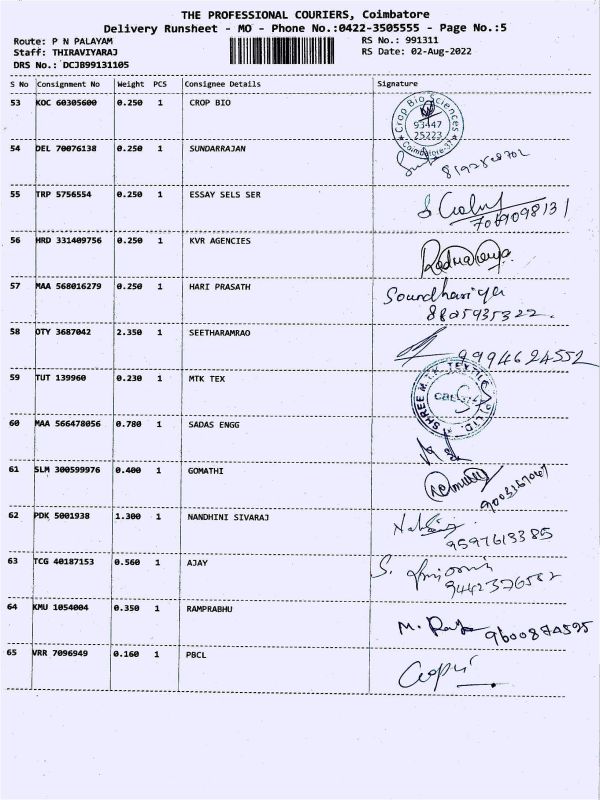 THE PROFESSIONAL COURIERS, Coimbatore
Delivery Runsheet - MO - Phone No.:0422-3505555 - Page No.:5
Route: P N PALAYAM RS No.: 991311
Staff: THIRAVIYARAJ RS Date: 02-Aug-2022
DRS No.: DCJB99131105
S No Consignment No Weight PCS Consignee Details Signature
53 KOC 60305600 0.250 1 CROP BIO
Crop Bio Sciences 93447 25223 Coimbatore-37
54 DEL 70076138 0.250 1 SUNDARRAJAN
55 TRP 5756554 0.250 1 ESSAY SELS SER
56 HRD 331409756 0.250 1 KVR AGENCIES
57 MAA 568016279 0.250 1 HARI PRASATH Soundhariya
8805935322
58 OTY 3687042 2.350 1 SEETHARAMRAO 9994624552
59 TUT 139960 0.230 1 MTK TEX SHREE M.T.K. TEXTILE
60 MAA 566478056 0.780 1 SADAS ENGG
61 SLM 300599976 0.400 1 GOMATHI
9003167067
62 PDK 5001938 1.300 1 NANDHINI SIVARAJ
9597613385
63 TCG 40187153 0.560 1 AJAY S.
9442376582
64 KMU 1054004 0.350 1 RAMPRABHU M. 9600874595
65 VRR 7096949 0.160 1 PBCL Gopi